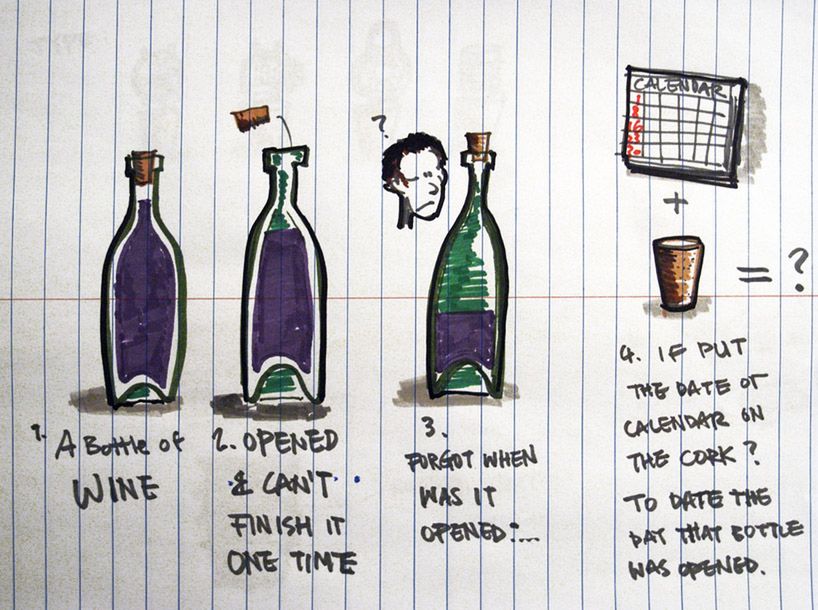 ?
CALENDAR
1
8
16
23
30
+
= ?
1. A Bottle of
WINE
2. OPENED
& CAN'T
FINISH IT
ONE TIME
3.
FORGOT WHEN
WAS IT
OPENED:...
4. IF PUT
THE DATE OF
CALENDAR ON
THE CORK?
TO DATE THE
DAY THAT BOTTLE
WAS OPENED.